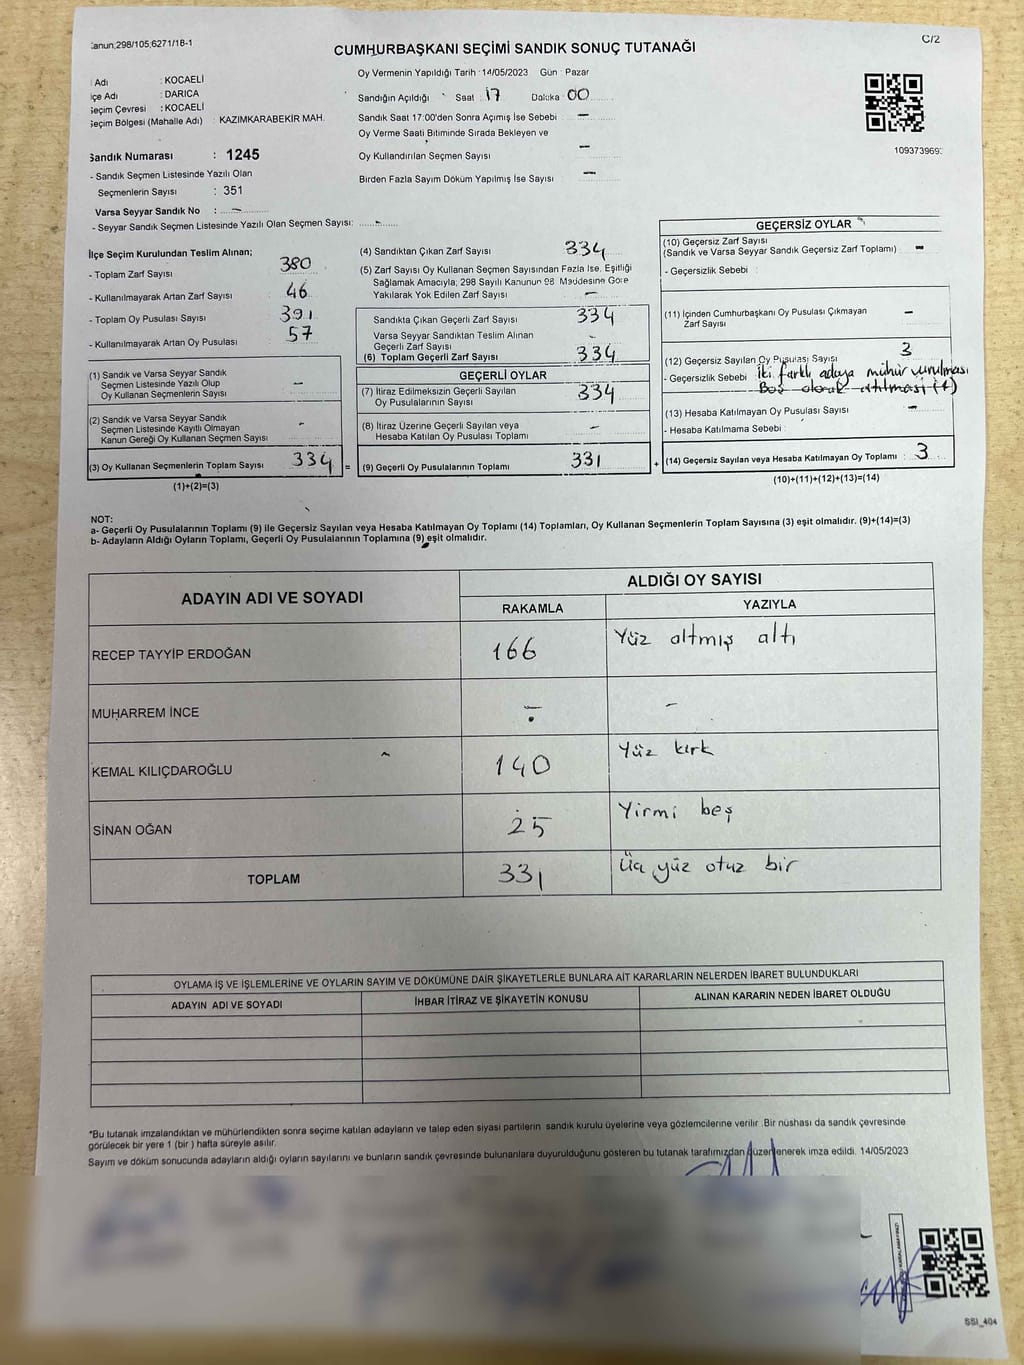 Kanun;298/105;6271/18-1
C/2
CUMHURBAŞKANI SEÇİMİ SANDIK SONUÇ TUTANAĞI
Adı : KOCAELİ
İlçe Adı : DARICA
Seçim Çevresi : KOCAELİ
Seçim Bölgesi (Mahalle Adı) : KAZIMKARABEKİR MAH.
Sandık Numarası : 1245
- Sandık Seçmen Listesinde Yazılı Olan
Seçmenlerin Sayısı : 351
Varsa Seyyar Sandık No : -
- Seyyar Sandık Seçmen Listesinde Yazılı Olan Seçmen Sayısı: -
Oy Vermenin Yapıldığı Tarih : 14/05/2023 Gün : Pazar
Sandığın Açıldığı Saat : 17 Dakika 00
Sandık Saat 17:00'den Sonra Açımış İse Sebebi : -
Oy Verme Saati Bitiminde Sırada Bekleyen ve
Oy Kullandırılan Seçmen Sayısı -
Birden Fazla Sayım Döküm Yapılmış İse Sayısı -
109373969
İlçe Seçim Kurulundan Teslim Alınan;
- Toplam Zarf Sayısı 380
- Kullanılmayarak Artan Zarf Sayısı 46
- Toplam Oy Pusulası Sayısı 391
- Kullanılmayarak Artan Oy Pusulası 57
(1) Sandık ve Varsa Seyyar Sandık
Seçmen Listesinde Yazılı Olup
Oy Kullanan Seçmenlerin Sayısı -
(2) Sandık ve Varsa Seyyar Sandık
Seçmen Listesinde Kayıtlı Olmayan
Kanun Gereği Oy Kullanan Seçmen Sayısı -
(3) Oy Kullanan Seçmenlerin Toplam Sayısı 334 =
(1)+(2)=(3)
(4) Sandıktan Çıkan Zarf Sayısı 334
(5) Zarf Sayısı Oy Kullanan Seçmen Sayısından Fazla İse, Eşitliği
Sağlamak Amacıyla; 298 Sayılı Kanunun 98. Maddesine Göre
Yakılarak Yok Edilen Zarf Sayısı -
Sandıkta Çıkan Geçerli Zarf Sayısı 334
Varsa Seyyar Sandıktan Teslim Alınan
Geçerli Zarf Sayısı -
(6) Toplam Geçerli Zarf Sayısı 334
GEÇERLİ OYLAR
(7) İtiraz Edilmeksizin Geçerli Sayılan
Oy Pusulalarının Sayısı 334
(8) İtiraz Üzerine Geçerli Sayılan veya
Hesaba Katılan Oy Pusulası Toplamı -
(9) Geçerli Oy Pusulalarının Toplamı 331 +
GEÇERSİZ OYLAR
(10) Geçersiz Zarf Sayısı
(Sandık ve Varsa Seyyar Sandık Geçersiz Zarf Toplamı) -
- Geçersizlik Sebebi :
(11) İçinden Cumhurbaşkanı Oy Pusulası Çıkmayan
Zarf Sayısı -
(12) Geçersiz Sayılan Oy Pusulası Sayısı 3
- Geçersizlik Sebebi : İki farklı adaya mühür vurulması
Boş olarak atılması (1)
(13) Hesaba Katılmayan Oy Pusulası Sayısı -
- Hesaba Katılmama Sebebi :
(14) Geçersiz Sayılan veya Hesaba Katılmayan Oy Toplamı : 3
(10)+(11)+(12)+(13)=(14)
NOT:
a- Geçerli Oy Pusulalarının Toplamı (9) ile Geçersiz Sayılan veya Hesaba Katılmayan Oy Toplamı (14) Toplamları, Oy Kullanan Seçmenlerin Toplam Sayısına (3) eşit olmalıdır. (9)+(14)=(3)
b- Adayların Aldığı Oyların Toplamı, Geçerli Oy Pusulalarının Toplamına (9) eşit olmalıdır.
ADAYIN ADI VE SOYADI
ALDIĞI OY SAYISI
RAKAMLA YAZIYLA
RECEP TAYYİP ERDOĞAN 166 Yüz altmış altı
MUHARREM İNCE - -
KEMAL KILIÇDAROĞLU 140 Yüz kırk
SİNAN OĞAN 25 Yirmi beş
TOPLAM 331 Üç yüz otuz bir
OYLAMA İŞ VE İŞLEMLERİNE VE OYLARIN SAYIM VE DÖKÜMÜNE DAİR ŞİKAYETLERLE BUNLARA AİT KARARLARIN NELERDEN İBARET BULUNDUKLARI
ADAYIN ADI VE SOYADI İHBAR İTİRAZ VE ŞİKAYETİN KONUSU ALINAN KARARIN NEDEN İBARET OLDUĞU
*Bu tutanak imzalandıktan ve mühürlendikten sonra seçime katılan adayların ve talep eden siyasi partilerin sandık kurulu üyelerine veya gözlemcilerine verilir .Bir nüshası da sandık çevresinde
görülecek bir yere 1 (bir ) hafta süreyle asılır.
Sayım ve döküm sonucunda adayların aldığı oyların sayılarını ve bunların sandık çevresinde bulunanlara duyurulduğunu gösteren bu tutanak tarafımızdan düzenlenerek imza edildi. 14/05/2023
SSİ_404